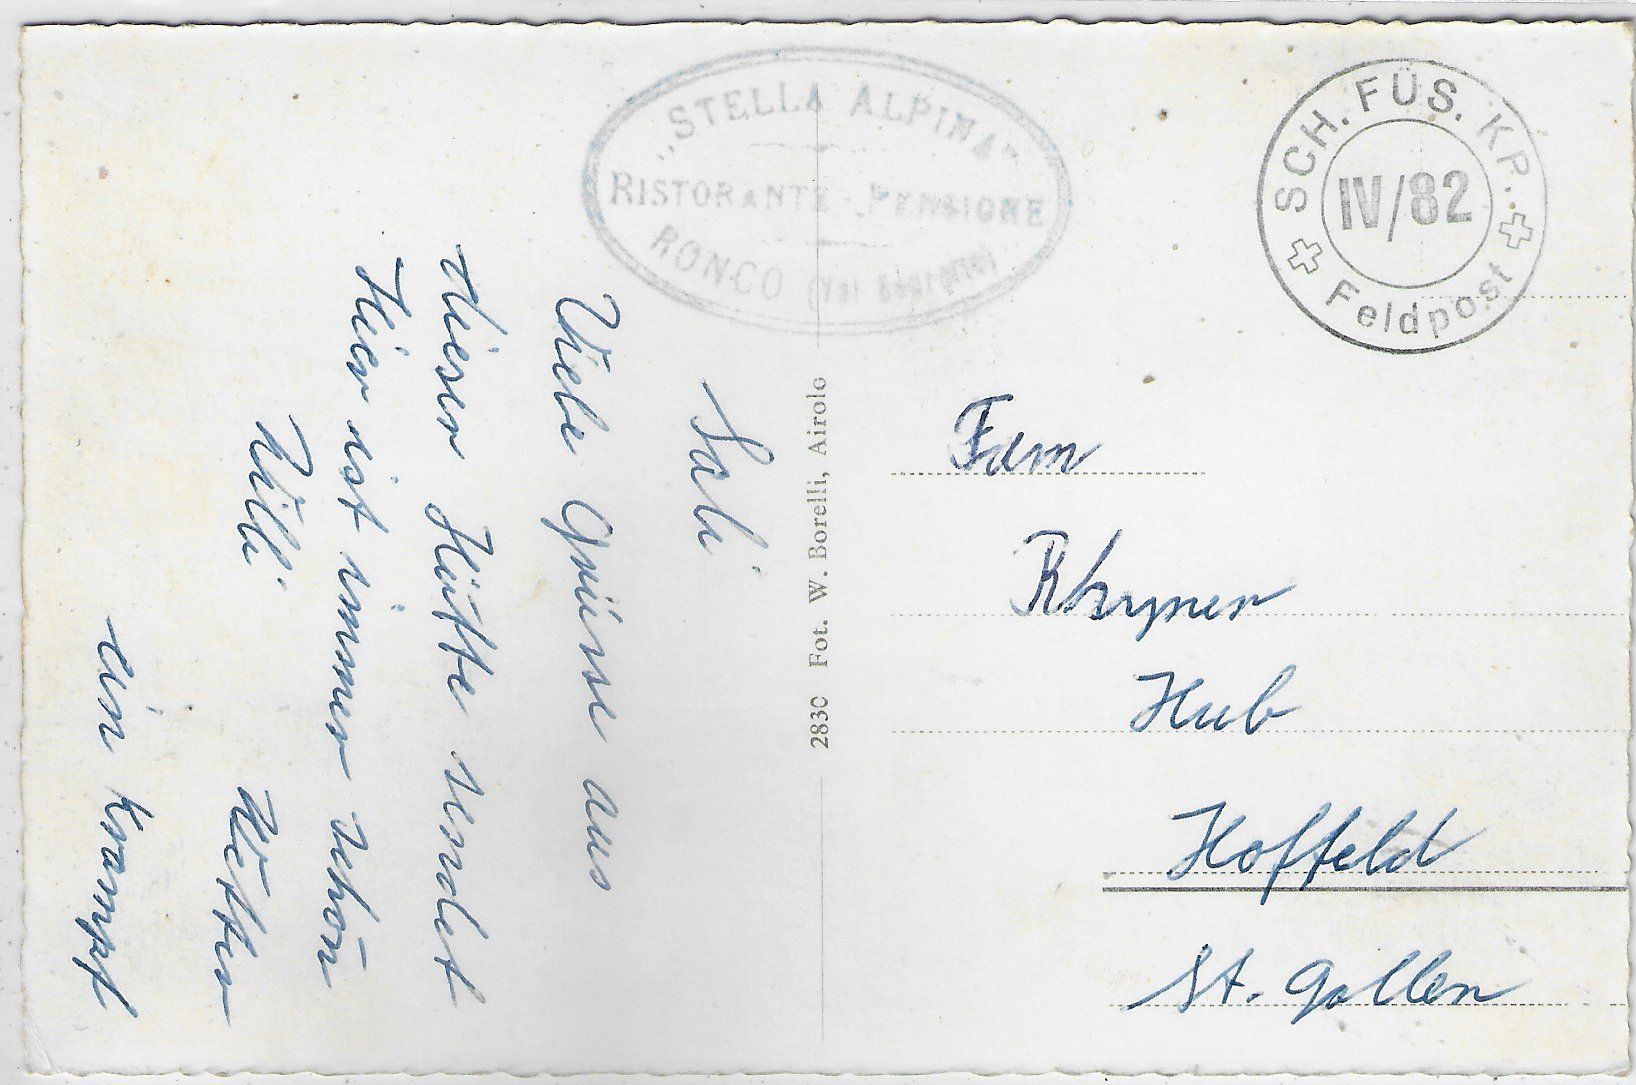 „STELLA ALPINA"
RISTORANTE - PENSIONE
RONCO (Val Bedretto)
SCH. FÜS. KP.
IV/82
Feldpost
Sali
Viele Grüsse aus
dieser Hütte sendet
Willi
Hier ist immer schön
Wetter
ein Krampf
2830 Fot. W. Borelli, Airolo
Fam
Rhyner
Hub
Hoffeld
St. Gallen